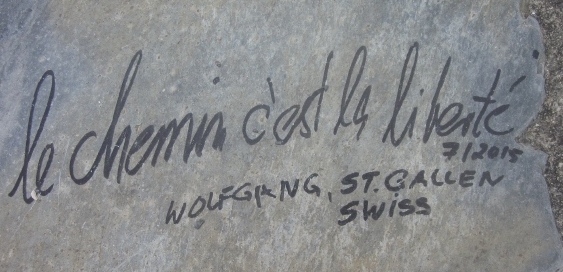 le chemin c'est la liberté
7/2015
WOLFGANG, ST. GALLEN
SWISS